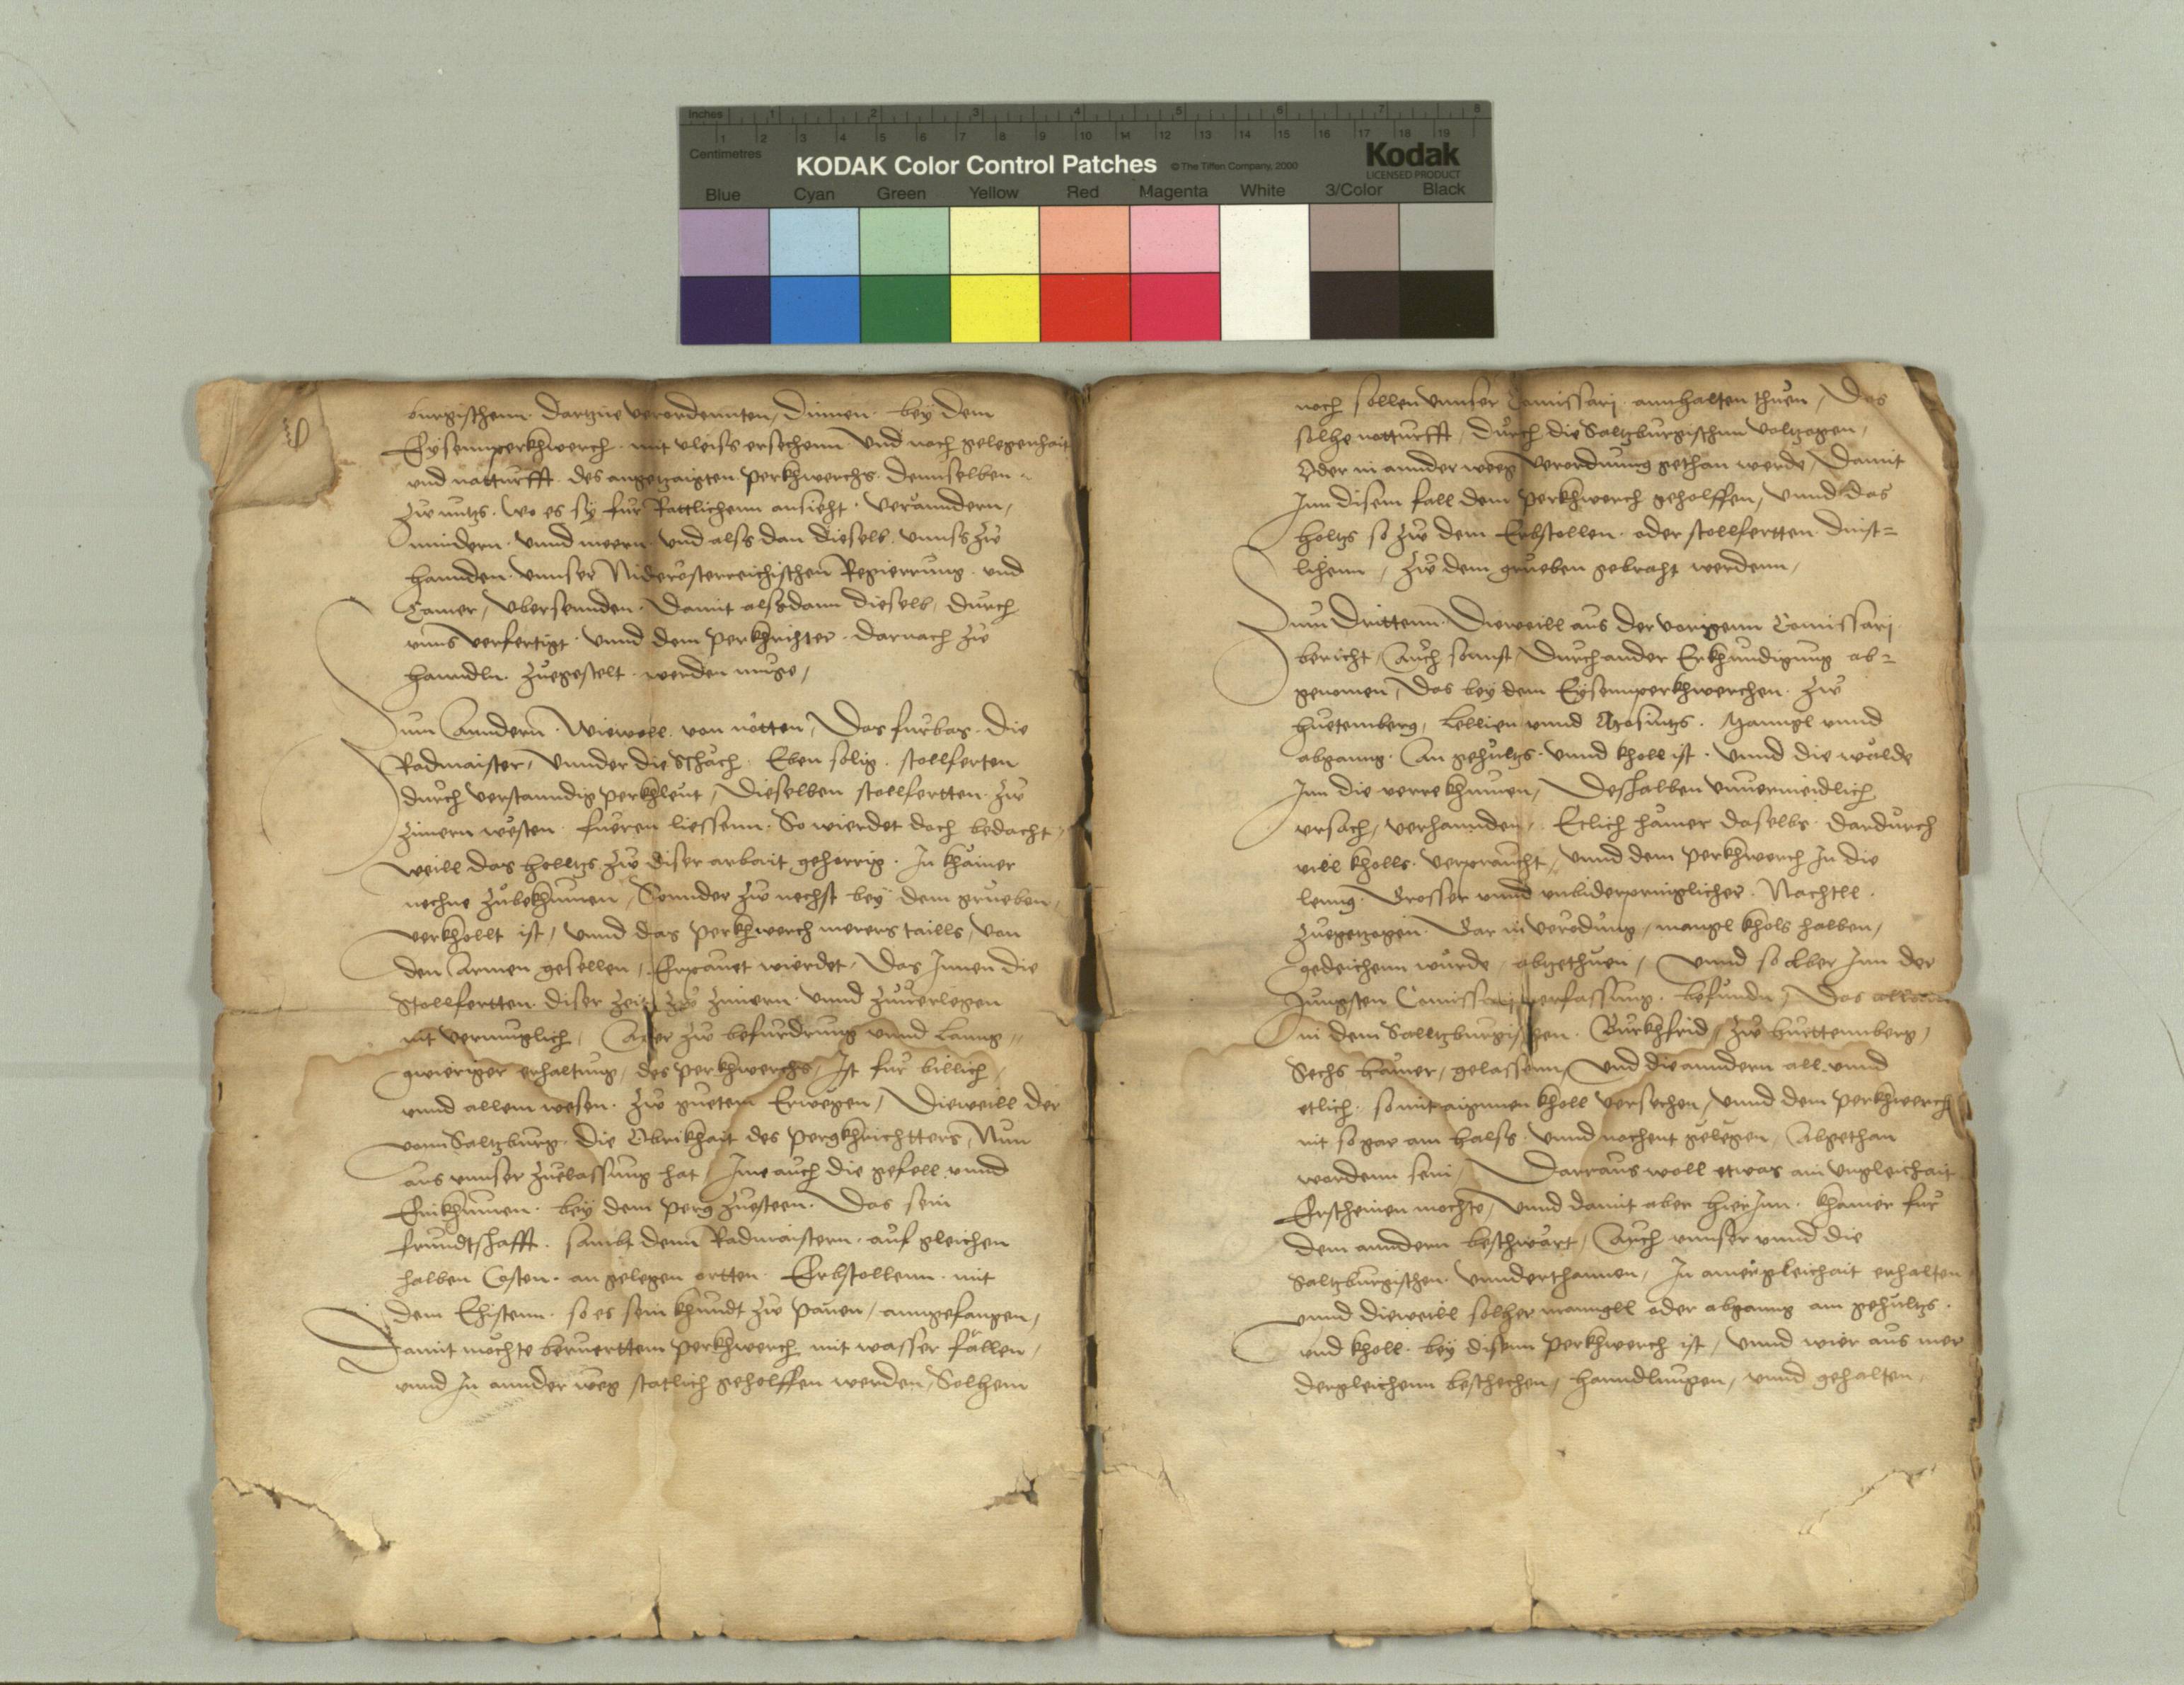 Inches 1 2 3 4 5 6 7 8
1 2 3 4 5 6 7 8 9 10 11 12 13 14 15 16 17 18 19
Centimetres
KODAK Color Control Patches © The Tiffen Company, 2000 Kodak
LICENSED PRODUCT
Blue Cyan Green Yellow Red Magenta White 3/Color Black
burgischenn dartzue verordennten, dinnen bey dem
Eysennperkhwerch mit vleiss ersechenn vnd nach gelegenhait
vnd notturfft des angetzaigten Perkhwerchs demselben
zw nutz. wo es sy fur Rattlichenn ansieht. veränndern,
mindern vnnd meern vnd alss dan dieselb vnns zw
hannden vnnser Niderösterreichischen Regierrung vnd
Camer, vbersennden. Damit alssdann dieselb, durch
vnns verfertigt vnnd dem Perkhrichter darnach zw
hanndln zuegestelt werden muge,
Zum Anndern. Wiewoll von nötten, Das furbas die
Radmaister, vnnder die schäch Eben solig stollferten
durch verstanndig Perkhleut, dieselben stollfertten zw
zimern westen fueren liessenn, So wierdet doch bedacht,
weill das holltz zw diser arbait gehorrig. In khainer
nechne zubekhumen, Sonnder zw nechst bey dem grueben
verkhollt ist, vnnd das Perkhwerch merers taills, von
den Armen gesellen, Erpauet wierdet, Das Innen die
Stollfertten diser zeit zw zimern vnnd zuuerlegen
nit vermuglich, Aber zw befurdrung vnnd lanng
gwieriger erhaltung, des Perkhwerchs, Ist fur billich,
vnnd allem wesen zw guetem Erwegen, Dieweill der
vonn Saltzburg die Obrikhait des Pergkhrichtters, Nun
aus vnnser zuelassung hat, Ime auch die gefell vnnd
Einkhumen bey dem perg zuesteen. Das sein
frundtschafft. sambt denn Radmaistern auf gleichen
halben Costen. an gelegen ortten Erbstollenn mit
dem Ehistenn so es sein khundt zw pauen, anngefangen,
Damit mochte beruerttem Perkhwerch mit wasser fällen,
vnnd In annder weg statlich geholffen werden, Solhem
noch sollen vnnser Comissari annhalten thuen, Das
solhe notturfft, durch die Saltzburgischen voltzogen,
Oder in annder weeg verordnung gethan werde, Damit
Inn disem fall dem Perkhwerch geholffen, vnnd das
holtz so zw dem Erbstollen oder stollfertten dinst=
lichenn, zw dem grueben gebracht werdenn,
Zum Drittenn. Dieweill aus der vorigenn Comissari
bericht, Auch sonnst durch ander Erkhundigung ab=
genomen, Das bey dem Eysennperkhwerchen zw
huetemberg, Lellien vnnd Mosintz. Manngl vnnd
abganng An gehultz vnnd kholl ist. vnnd die wälde
Inn die verre khumen, Deshalben vnuermeidlich
vrsach, verhannden, Etlich hämer daselbs dardurch
vill kholls verpraucht, vnnd dem Perkhwerch In die
lenng Grosser vnnd vnbiderpringlicher Nachtll.
zuegetzogen Gar in verödung, mangl khols halben,
gedeichenn wurde, abgethuen, vnnd so Aber Inn der
Jungsten Comissari verfassung. befunden, Das allain
in dem Salltzburgischen Burkhfrid, zw huettennberg,
Sechs hämer, gelassenn, vnd die anndern all vnnd
etlich so mit aignnen kholl versechen, vnnd dem Perkhwerch
nit so gar am halss vnnd nachent gelegen, Abgethan
wordenn sein, Darraus woll etwas ain vngleichait
Erscheinen mochte, vnnd damit aber hierInn khainer fur
dem anndern beschwärt, Auch vnnser vnnd die
Saltzburgischen vnnderthannen, In ainer gleichait erhalten
vnnd dieweill solher manngll oder abganng am gehultz.
vnd kholl bey disenn Perkhwerch ist, vnnd wier aus mer
dergleichenn beschechen, hanndlungen, vnnd gehalten,